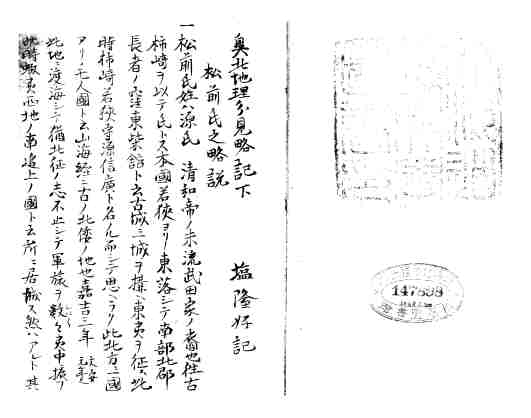 奥北地理分見略記下
塩隆好記
松前氏之略説
一松前氏姓ハ源氏 清和帝ノ末流武田家ノ裔也往古
柿崎ヲ以テ氏トス本國若狹ヨリ東落シテ南部北郡
長者ノ窪東柴舘ト云古城三城ヲ構ヘ東夷ヲ征ス此
時柿崎若狹守源信廣ト名ノル而シテ思ヘラク此北方ニ國
アリ无人國ト云山海経ニ古ノ北倭ノ地也嘉吉三年
此地ニ渡海シテ猶北征ノ志不止シテ軍旅ヲ
此時蝦夷西地ノ南邉上ノ國ト云所ニ居城ス然ハアレト其
147838